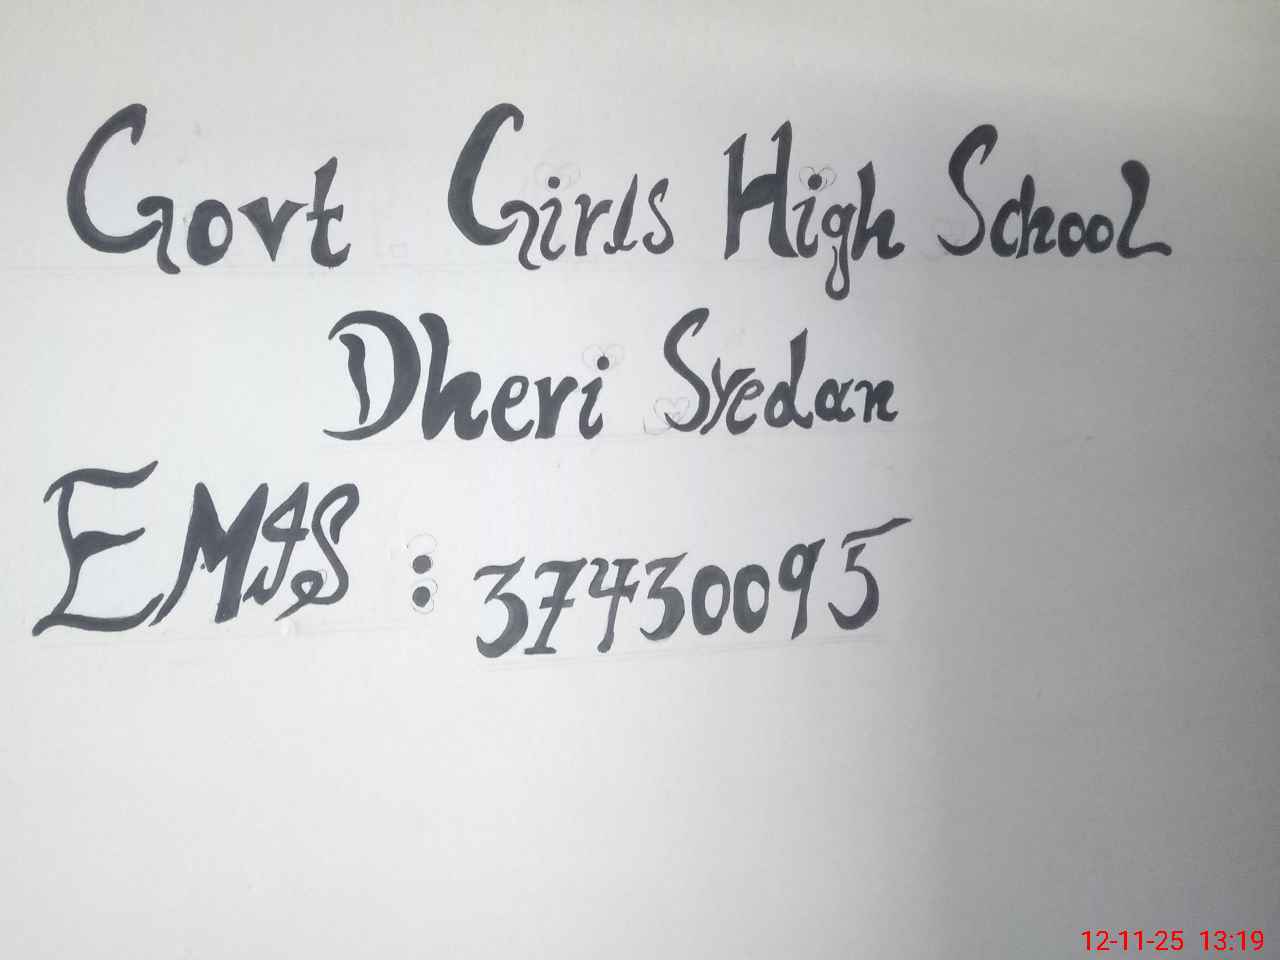 Govt Girls High School
Dheri Syedan
EMIS : 37430095
12-11-25 13:19